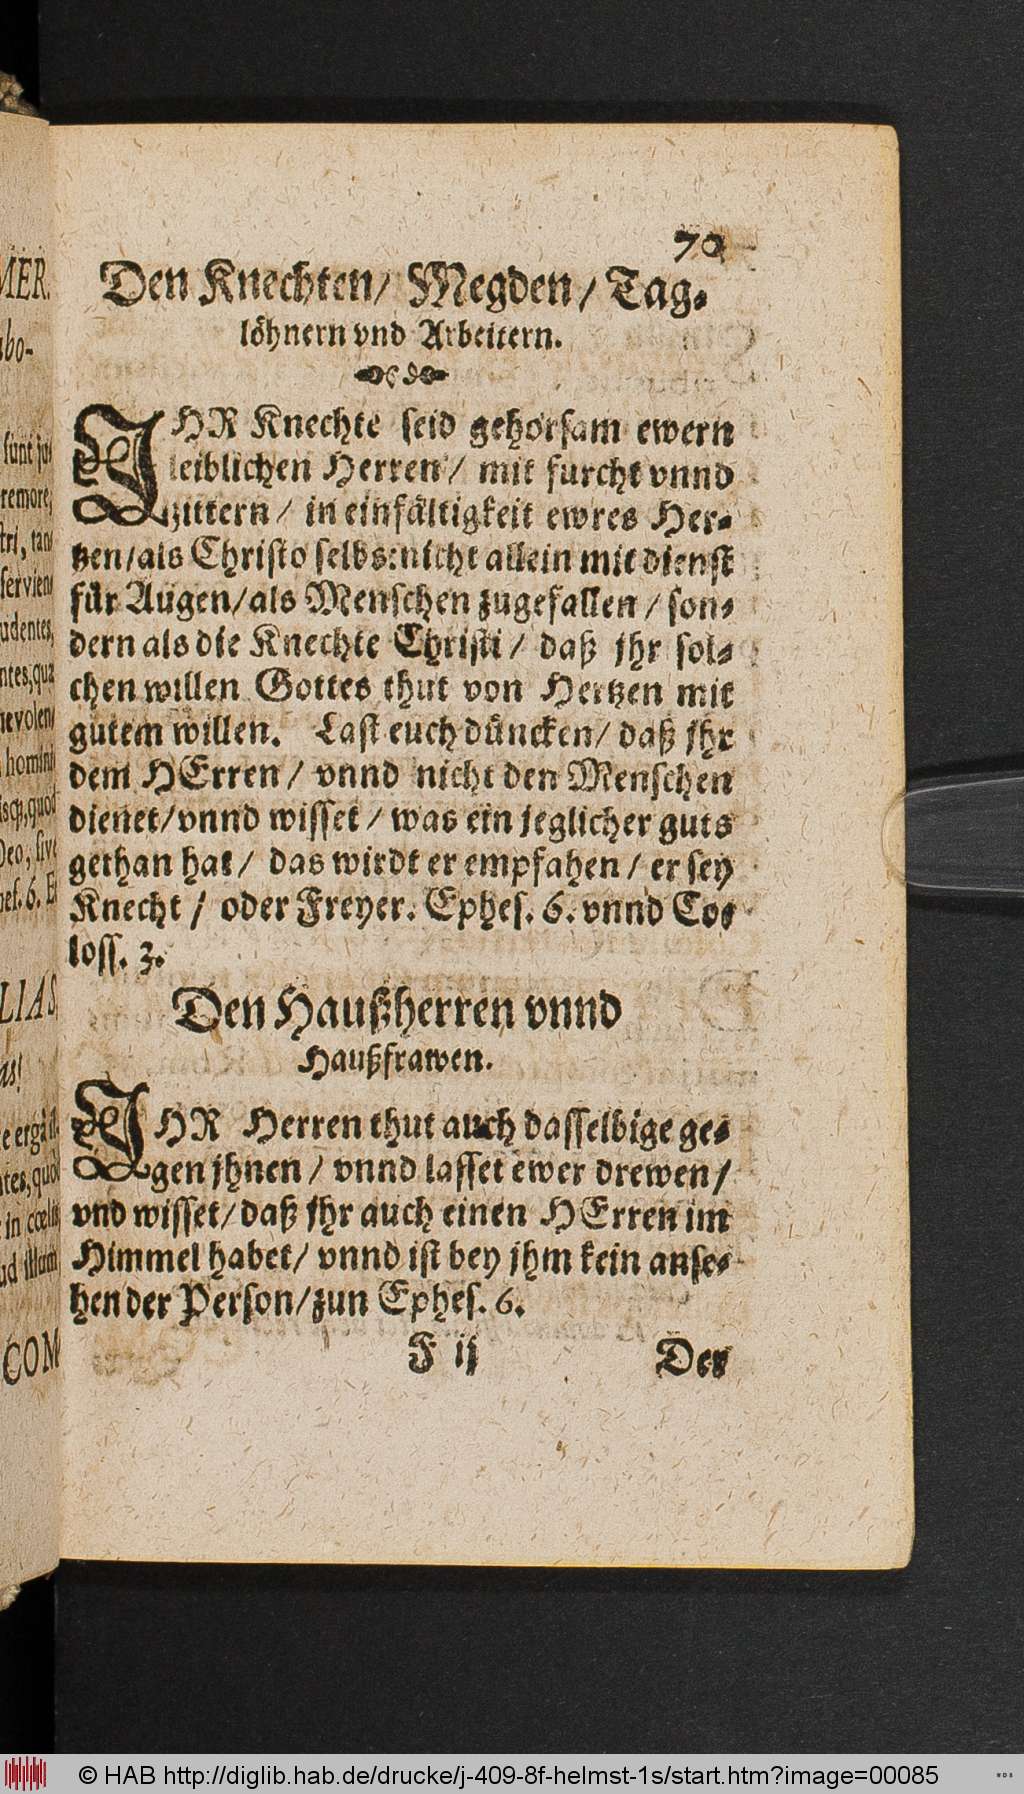 MER.
abo-
sunt ju-
tremore,
stri, tan-
servien-
udentes,
ntes, qua
nevolen-
homini-
iscq;, quod
Deo, sive
hes. 6. Et
LIAS
as!
e ergà il-
ntes, quòd
in cœlis
ud illum
COM-
70
Den Knechten/ Megden/ Tag-
löhnern vnd Arbeitern.
IHR Knechte seid gehorsam ewern
leiblichen Herren/ mit furcht vnnd
zittern/ in einfältigkeit ewres Her-
tzen/als Christo selbs: nicht allein mit dienst
für Augen/als Menschen zugefallen/ son-
dern als die Knechte Christi/ daß jhr sol-
chen willen Gottes thut von Hertzen mit
gutem willen. Last euch düncken/ daß jhr
dem HErren/ vnnd nicht den Menschen
dienet/vnnd wisset/ was ein jeglicher guts
gethan hat/ das wirdt er empfahen/ er sey
Knecht/ oder Freyer. Ephes. 6. vnnd Co-
loss. 3.
Den Haußherren vnnd
Haußfrawen.
IHR Herren thut auch dasselbige ge-
gen jhnen/ vnnd lasset ewer drewen/
vnd wisset/ daß jhr auch einen HErren im
Himmel habet/ vnnd ist bey jhm kein anse-
hen der Person/zun Ephes. 6.
F ij Der
© HAB http://diglib.hab.de/drucke/j-409-8f-helmst-1s/start.htm?image=00085
WDB